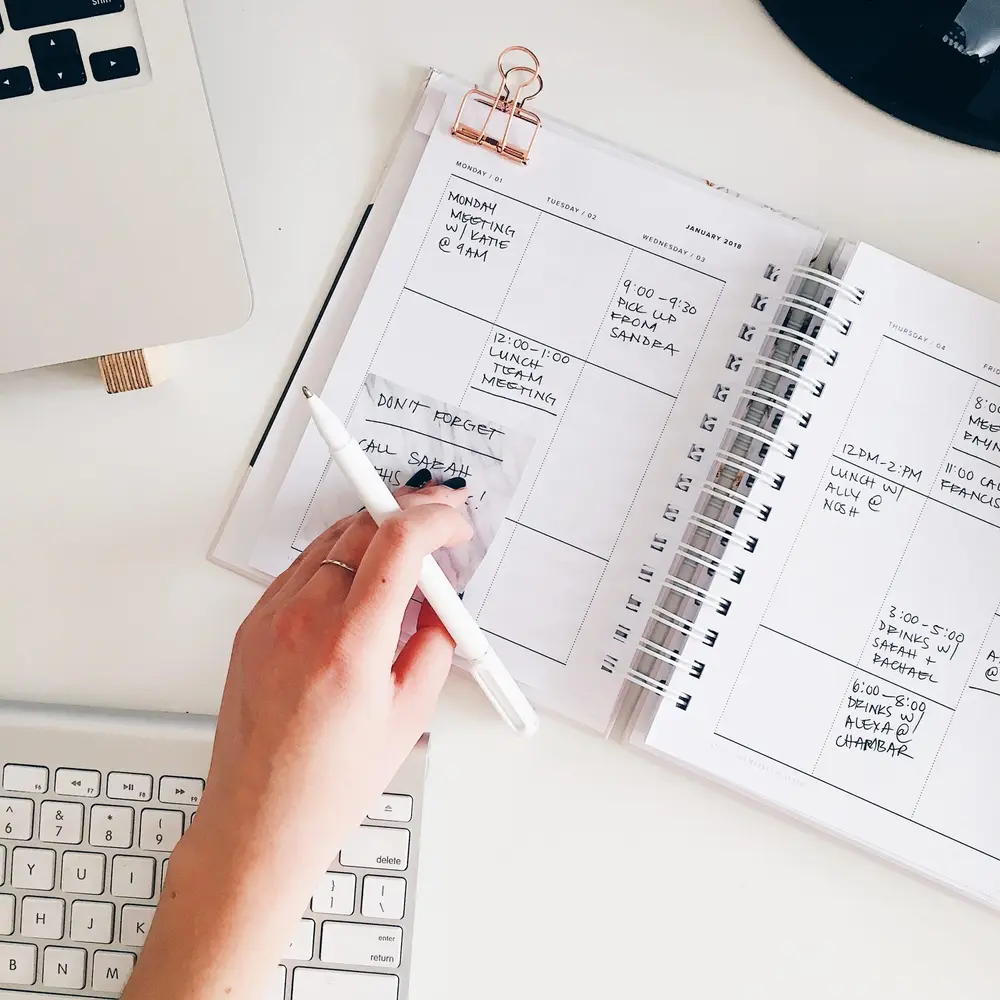 MONDAY / 01
MONDAY
MEETING
W/ KATIE
@ 9AM
TUESDAY / 02
12:00-1:00
LUNCH
TEAM
MEETING
JANUARY 2018
WEDNESDAY / 03
9:00-9:30
PICK UP
FROM
SANDRA
DON'T FORGET
CALL SARAH
THIS !
THURSDAY / 04
12PM-2:PM
LUNCH W/
ALLY @
NOSH
FRID
8:00
MEE
RAYN
11:00 CAL
FRANCIS
3:00-5:00
DRINKS W/
SARAH +
RACHAEL
6:00-8:00
DRINKS W/
ALEXA @
CHAMBAR
A
@
shift
F6 F7 F8 F9
^ 6 & 7 * 8 ( 9
delete
Y U I } ] | \
H J K enter return
B N M